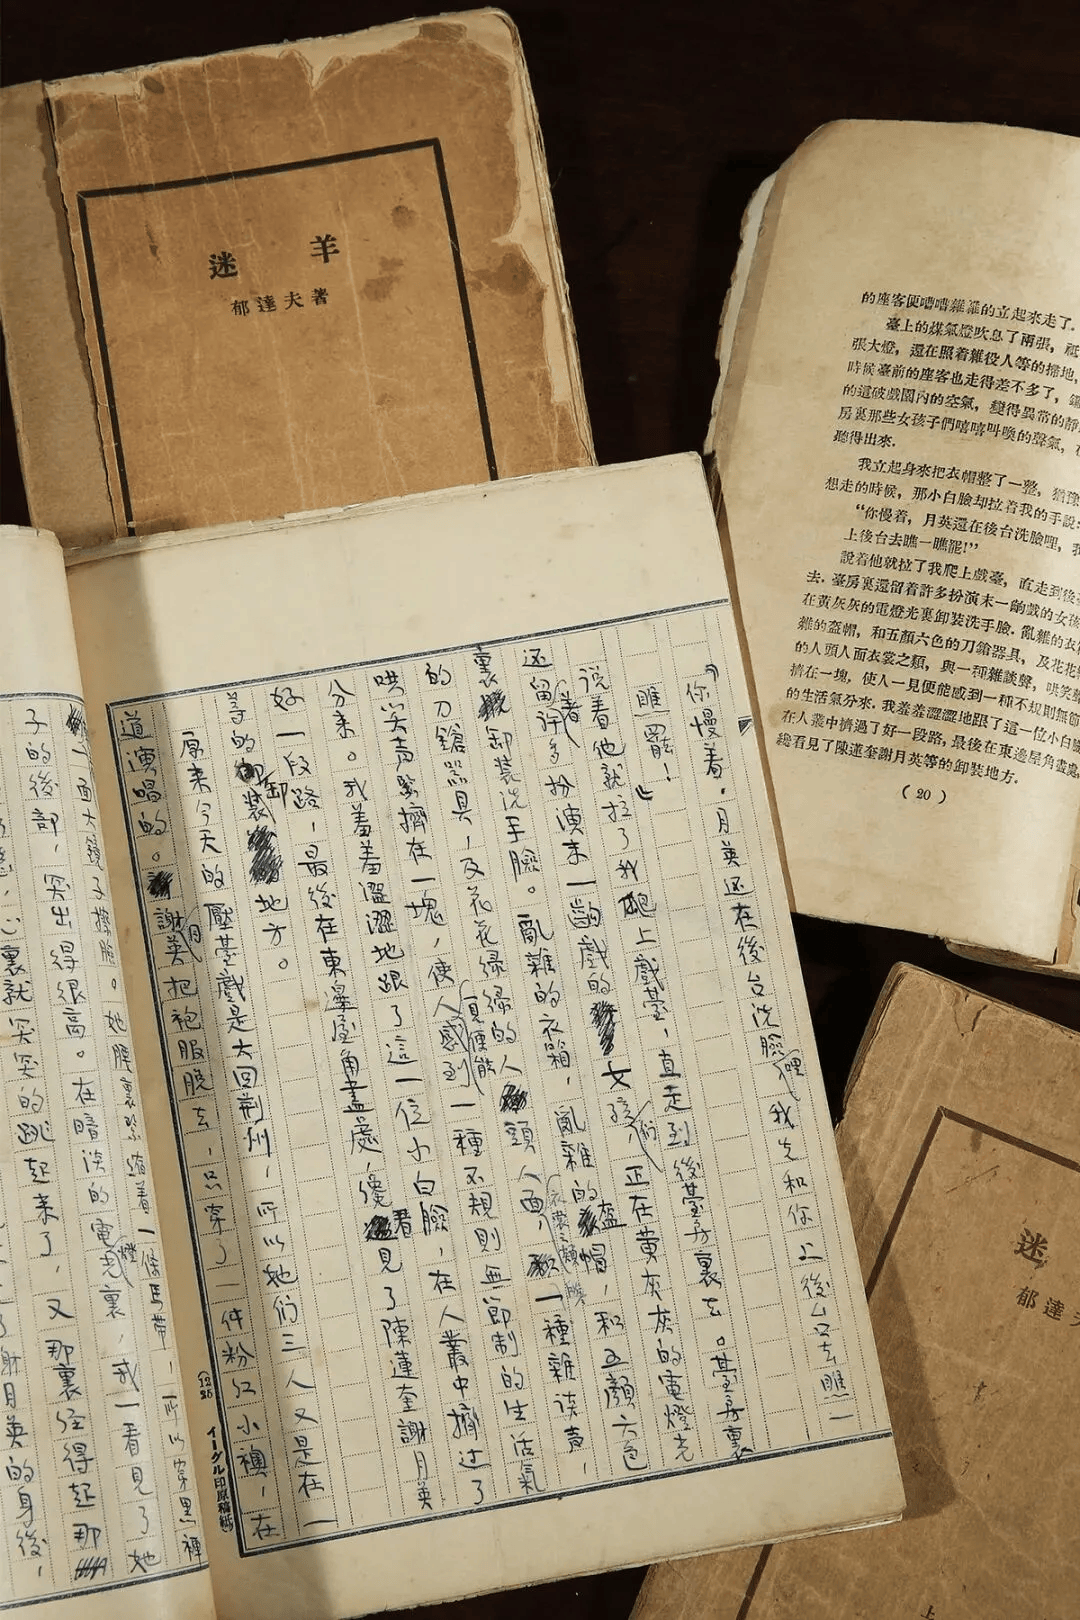 迷羊
郁達夫著
的座客便嘈嘈雜雜的立起來走了.
臺上的煤氣燈吹息了兩張，祗
張大燈，還在照着雜役人等的掃地，
時候臺前的座客也走得差不多了，鑼
的這破戲園內的空氣，變得異常的靜
房裏那些女孩子們嘻嘻叫喚的聲氣，
聽得出來.
我立起身來把衣帽整了一整，猶豫
想走的時候，那小白臉却拉着我的手說:
“你慢着，月英還在後台洗臉哩，我
上後台去瞧一瞧罷!”
說着他就拉了我爬上戲臺，直走到後臺
去.臺房裏還留着許多扮演末一齣戲的女孩
在黃灰灰的電燈光裏卸裝洗手臉.亂雜的衣
雜的盔帽，和五顏六色的刀鎗器具，及花花
的人頭人面衣裳之類，與一種雜談聲，哄笑
擠在一塊，使人一見便能感到一種不規則無節
的生活氣分來.我羞羞澀澀地跟了這一位小白臉
在人叢中擠過了好一段路，最後在東邊屋角盡處
纔看見了陳蓮奎謝月英等的卸裝地方.
( 20 )
“你慢着，月英还在後台洗臉哩，我先和你上後台去瞧一
瞧罷！”
说着他就拉了我爬上戲臺，直走到後臺房裏去。臺房裏
还留着许多扮演末一齣戲的女孩们，正在黄灰灰的電燈光
裏卸装洗手臉。亂雜的衣箱，亂雜的盔帽，和五顏六色
的刀鎗器具，及花花绿绿的人頭人面，衣裳之類，與一種雜谈声，
哄笑声緊擠在一塊，使人一見便能感到一種不規則無節制的生活氣
分来。我羞羞澀澀地跟了這一位小白臉，在人叢中擠过了
好一段路，最後在東邊屋角盡處，纔看見了陳蓮奎謝月英
等的卸装地方。
原来今天的壓臺戲是大回荆州，所以她们三人又是在一
道演唱的。謝月英把袍服脱去，只穿了一件粉红小襖，在
一面大鏡子擦臉。她腰裏紧缚着一條馬带，所以穿黑褲
子的後部，突出得很高。在暗淡的電燈光裏我一看見了她
心裏就突突的跳起来了，又那裏经得起那
了謝月英的身後，
(12 25 イーグル印原稿紙)
迷
郁達夫